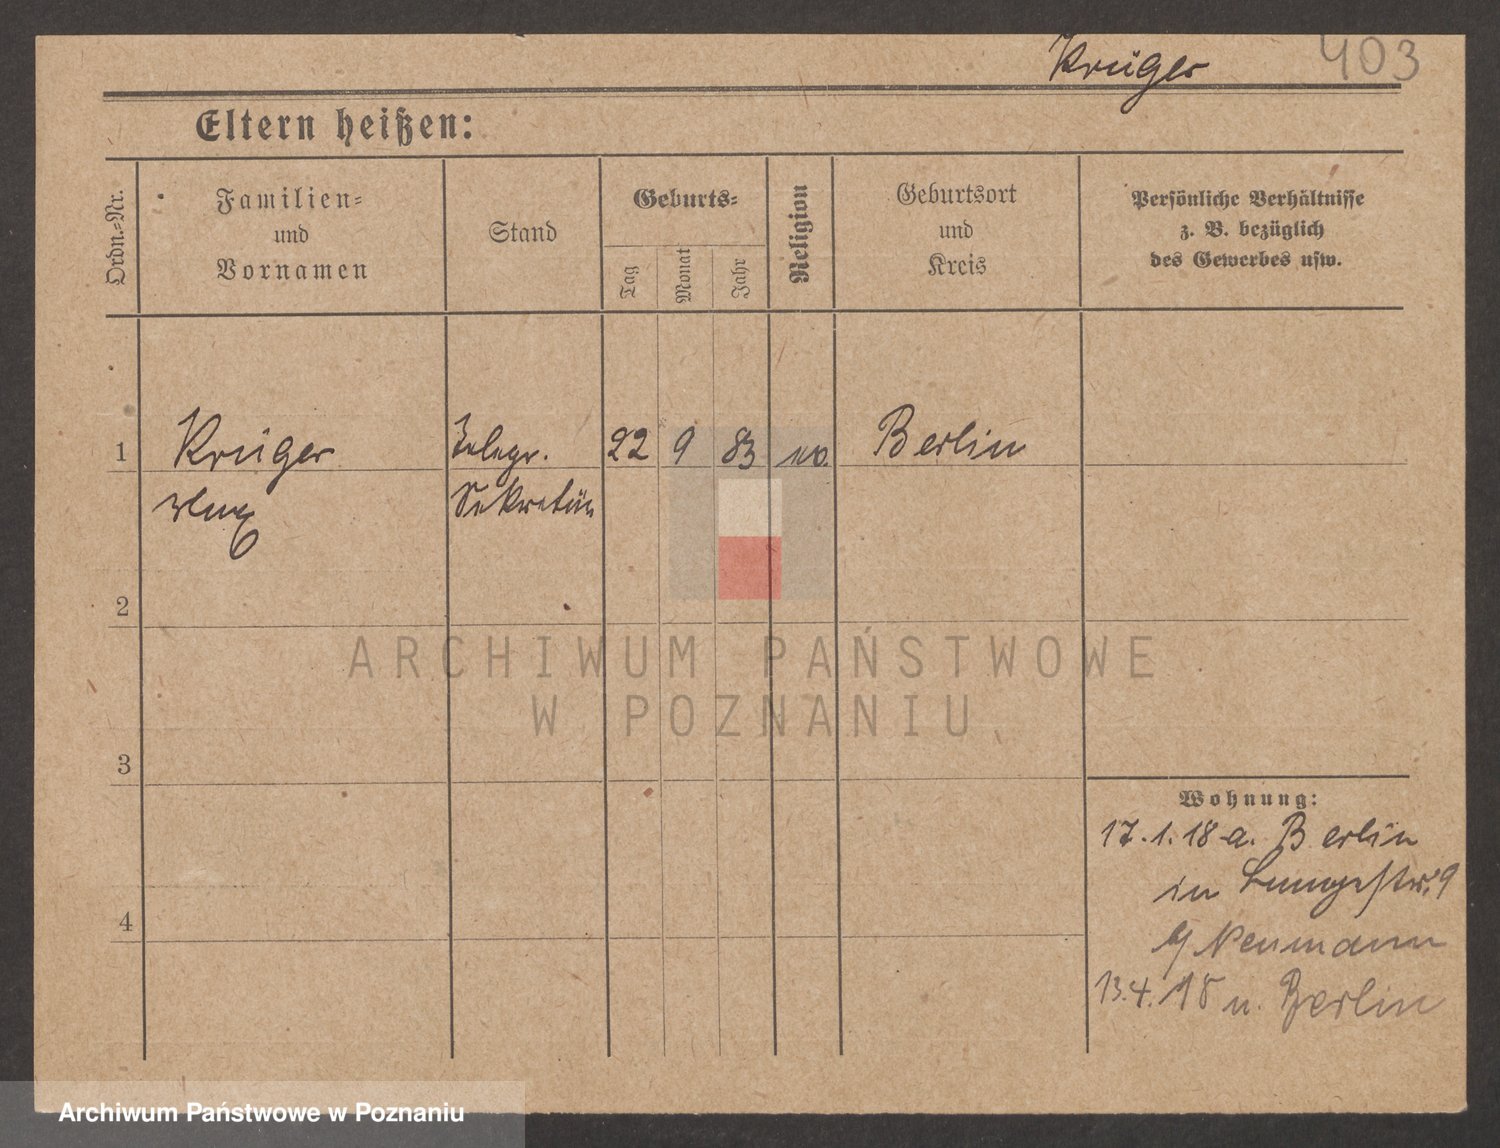 Krüger 403
Eltern heißen:
Ordn.-Nr.
Familien-
und
Vornamen
Stand
Geburts-
Tag
Monat
Jahr
Religion
Geburtsort
und
Kreis
Persönliche Verhältnisse
z. B. bezüglich
des Gewerbes usw.
1 Krüger Telegr. 22 9 83 Berlin
Max Sekretär
2
ARCHIWUM PAŃSTWOWE
W POZNANIU
3
Wohnung:
17.1.18 a. Berlin
in 9
b/ Neumann
4
13.4.18 n. Berlin
Archiwum Państwowe w Poznaniu